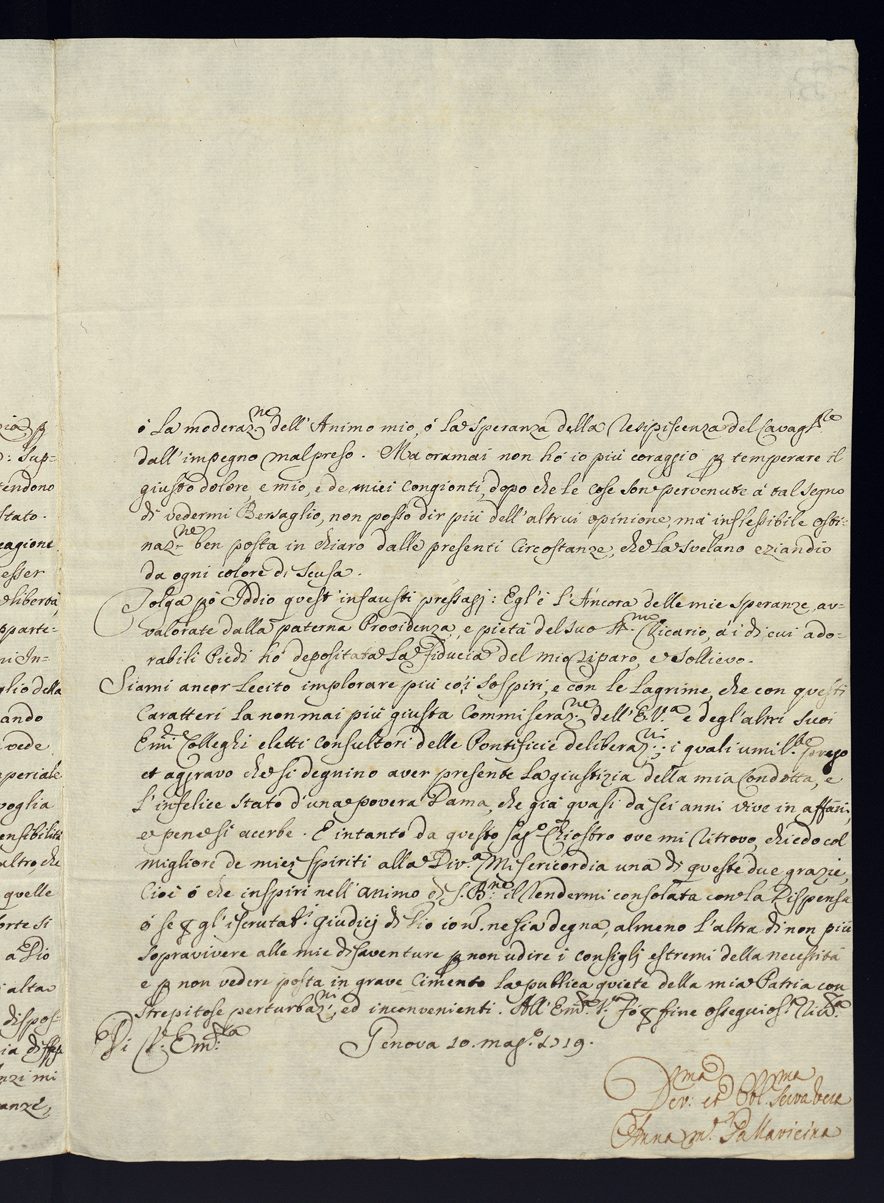 ò la moderaz.ne dell'Animo mio, ò la speranza della Resipiscenza del Cavag.re
dall'impegno mal preso. Mà oramai non hò io più coraggio p temperare il
giusto dolore, e mio, e de miei Congionti, dopo che le cose son pervenute à tal segno
di vedermi Bersaglio, non posso dir più dell'altrui opinione, mà inflessibile osti=
naz.ne ben posta in chiaro dalle presenti Circostanze, che la svelano eziandio
da ogni colore di scusa.
Tolga pò Iddio quest'infausti pressagj: Egl'è l'Ancora delle mie speranze, av=
valorate dalla paterna Providenza, e pietà del suo Vicario, à i di cui ado=
rabili Piedi hò depositata la fiducia del mio riparo, e sollievo.
Siami ancor lecito implorare più co'i sospiri, e con le lagrime, che con questi
Caratteri la non mai più giusta Commiseraz.ne dell'E.V.a e degl'altri suoi
Em.mi Colleghi eletti Consultori delle Pontificie deliberaz.ni i quali umil.te prego
et aggravo che si degnino aver presente la giustizia della mia Condotta, e
l'infelice stato d'una povera Dama, che già quasi da sei anni vive in affanni,
e pene sì acerbe. E intanto da questo sag.o Chiostro ove mi ritrovo, chiedo col
migliore de miei spiriti alla Div.a Misericordia una di queste due grazie,
Cioè ò che inspiri nell'animo di S. B.ne il rendermi consolata con la Dispensa
ò se p gl'iscrutab.i giudicj di Dio io n. ne sia degna, almeno l'altra di non più
sopravivere alle mie disaventure p non udire i consiglj estremi della necessità
e p non vedere posta in grave Cimento la publica quiete della mia Patria con
strepitose perturbaz.ni, ed inconvenienti. All'Em.za V.a Io p fine ossequios.
Di V. Em.za Genova 10. mag.o 1719.
Dev.ma et Obl.ma Serva vera
Anna M.a Pallavicina